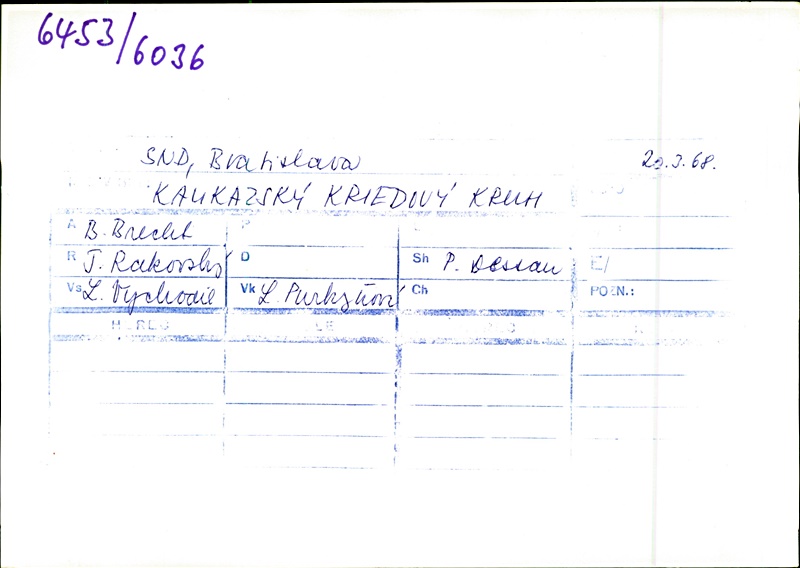 6453/6036
SND, Bratislava 20.3.68.
KAUKAZSKÝ KRIEDOVÝ KRUH
A B. Brecht P
R J. Rakovský D Sh P. Dessau E/
Vs L. Vychodil Vk L. Purkyňová Ch POZN.: